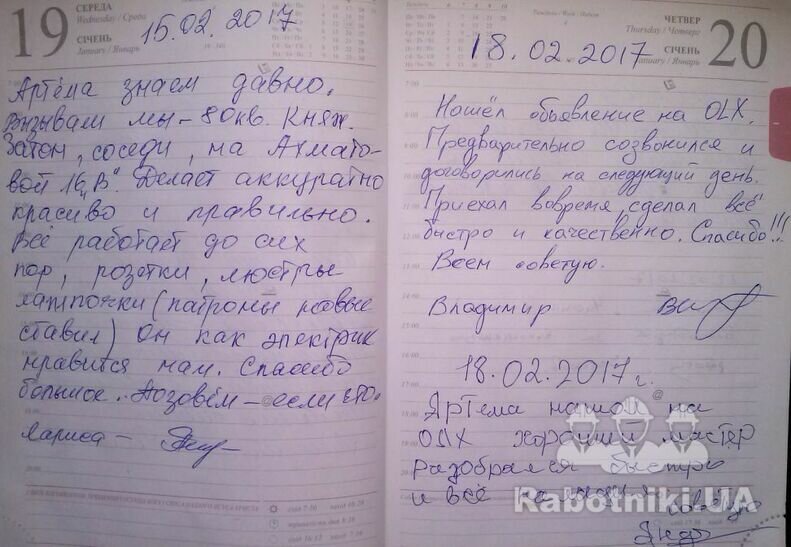 19
СЕРЕДА
Wednesday / Среда
СІЧЕНЬ
January / Январь
15.02.2017
Артёма знаем давно.
Вызывали мы – 80кв. Княж.
Затон, соседи, на Ахмато-
вой 16 „В". Делает аккуратно
красиво и правильно.
Всё работает до сих
пор, розетки, люстры
лампочки (патроны новые
ставил) Он как электрик
нравится нам. Спасибо
большое. Позовём – если что.
Лариса –
20
ЧЕТВЕР
Thursday / Четверг
СІЧЕНЬ
January / Январь
18.02.2017
Нашёл объявление на OLX.
Предварительно созвонился и
договорились на следующий день.
Приехал вовремя, сделал всё
быстро и качественно. Спасибо!!!
Всем советую.
Владимир
18.02.2017г.
Артёма нашол на
OLX хороший мастер
разобрался быстро
и всё
советую
Rabotniki.UA